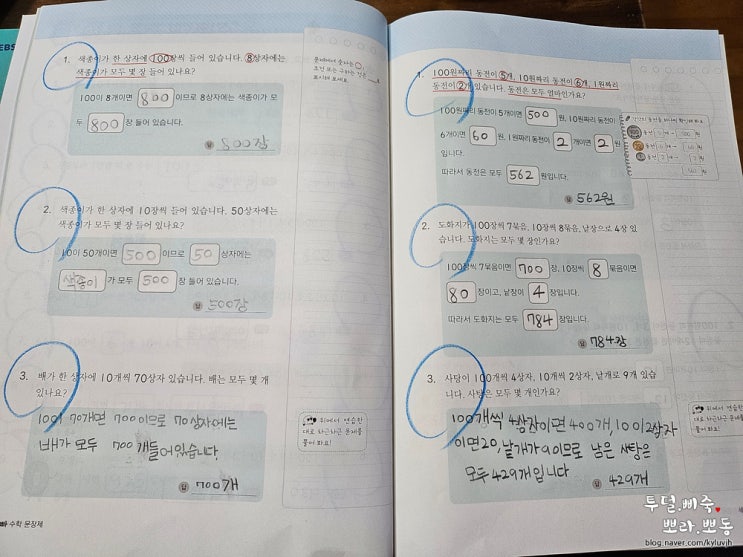 EBS
1. 색종이가 한 상자에 100장씩 들어 있습니다. 8상자에는
색종이가 모두 몇 장 들어 있나요?
100이 8개이면 800 이므로 8상자에는 색종이가 모
두 800 장 들어 있습니다.
답 800장
문제에서 숫자는 ○,
조건 또는 구하는 것은 ＿로
표시해 보세요.
2. 색종이가 한 상자에 10장씩 들어 있습니다. 50상자에는
색종이가 모두 몇 장 들어 있나요?
10이 50개이면 500 이므로 50 상자에는
색종이 가 모두 500 장 들어 있습니다.
답 500장
3. 배가 한 상자에 10개씩 70상자 있습니다. 배는 모두 몇 개
있나요?
10이 70개면 700이므로 70상자에는
배가 모두 700개들어있습니다
답 700개
위에서 연습한
대로 차근차근 문제를
풀어 봐요!
빠 수학 문장제
1. 100원짜리 동전이 5개, 10원짜리 동전이 6개, 1원짜리
동전이 2개 있습니다. 동전은 모두 얼마인가요?
100원짜리 동전이 5개이면 500 원, 10원짜리 동전이
6개이면 60 원, 1원짜리 동전이 2 개이면 2 원
입니다.
따라서 동전은 모두 562 원입니다.
답 562원
2. 도화지가 100장씩 7묶음, 10장씩 8묶음, 낱장으로 4장 있
습니다. 도화지는 모두 몇 장인가요?
100장씩 7묶음이면 700 장, 10장씩 8 묶음이면
80 장이고, 낱장이 4 장입니다.
따라서 도화지는 모두 784 장입니다.
답 784장
3. 사탕이 100개씩 4상자, 10개씩 2상자, 낱개로 9개 있습
니다. 사탕은 모두 몇 개인가요?
100개씩 4상자이면 400개, 10이 2상자
이면 20, 낱개가 9이므로 남은 사탕은
모두 429개입니다
답 429개
위에서 연습한
대로 차근차근 문제를
풀어 봐요!
투덜.삐죽
뽀라.뽀동
blog.naver.com/kyluvjh